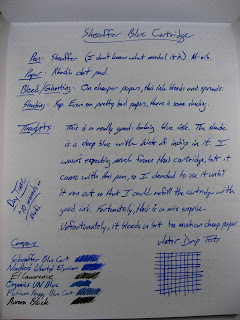 Sheaffer Blue Cartridge
Pen: Sheaffer (I don't know what model it is) M-nib.
Paper: Rhodia dot pad.
Bleed/Ghosting: On cheaper papers, this ink bleeds and spreads.
Shading: Yep. Even on pretty bad papers, there is some shading.
Thoughts: This is a really good-looking blue ink. The shade
is a deep blue with hints of indigo in it. I
wasn't expecting much from that cartridge, but it
came with this pen, so I decided to use it until
it ran out so that I could refill the cartridge with
good ink. Fortunately, this is a nice surprise.
Unfortunately, it bleeds a bit too much on cheap paper.
Dry Time:
~20 seconds on
Rhodia
Compare
Water Drip Test:
Sheaffer Blue Cart
Noodler's Liberty's Elysium
El Lawrence
Organics Studio Blue
Aurora Black